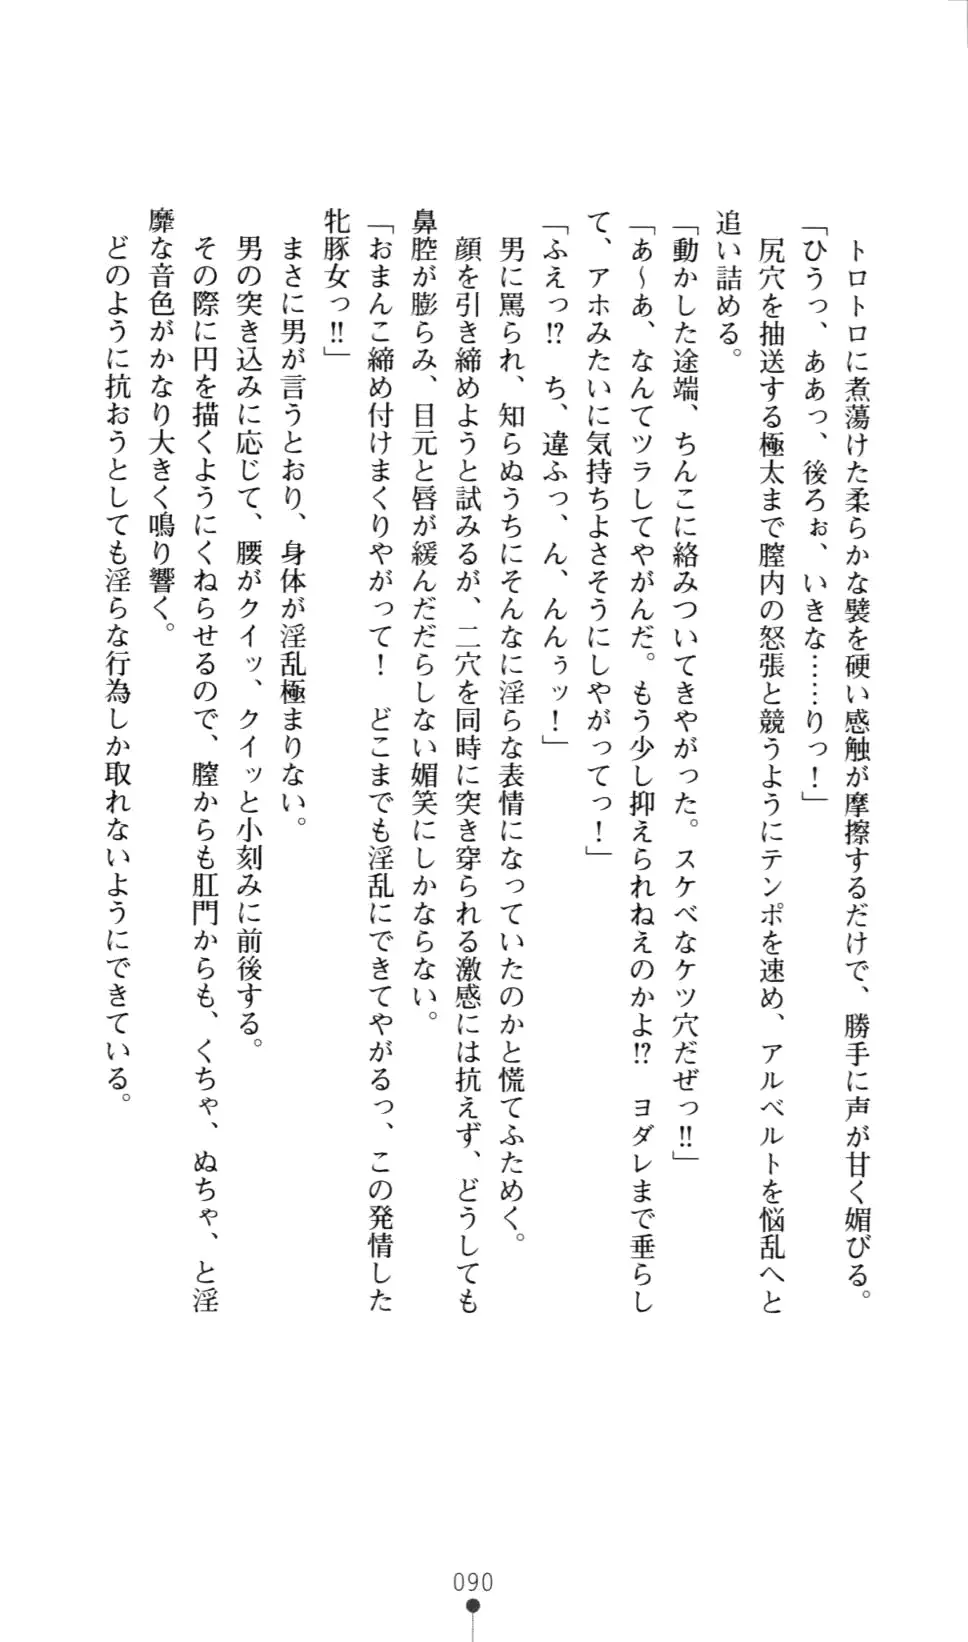 トロトロに煮蕩けた柔らかな襞を硬い感触が摩擦するだけで、勝手に声が甘く媚びる。
「ひうっ、ああっ、後ろぉ、いきな……りっ！」
尻穴を抽送する極太まで膣内の怒張と競うようにテンポを速め、アルベルトを悩乱へと
追い詰める。
「動かした途端、ちんこに絡みついてきやがった。スケベなケツ穴だぜっ!!」
「あ〜あ、なんてツラしてやがんだ。もう少し抑えられねえのかよ!?　ヨダレまで垂らし
て、アホみたいに気持ちよさそうにしやがってっ！」
「ふえっ!?　ち、違ふっ、ん、んんぅッ！」
男に罵られ、知らぬうちにそんなに淫らな表情になっていたのかと慌てふためく。
顔を引き締めようと試みるが、二穴を同時に突き穿られる激感には抗えず、どうしても
鼻腔が膨らみ、目元と唇が緩んだだらしない媚笑にしかならない。
「おまんこ締め付けまくりやがって！　どこまでも淫乱にできてやがるっ、この発情した
牝豚女っ!!」
まさに男が言うとおり、身体が淫乱極まりない。
男の突き込みに応じて、腰がクイッ、クイッと小刻みに前後する。
その際に円を描くようにくねらせるので、膣からも肛門からも、くちゃ、ぬちゃ、と淫
靡な音色がかなり大きく鳴り響く。
どのように抗おうとしても淫らな行為しか取れないようにできている。
090